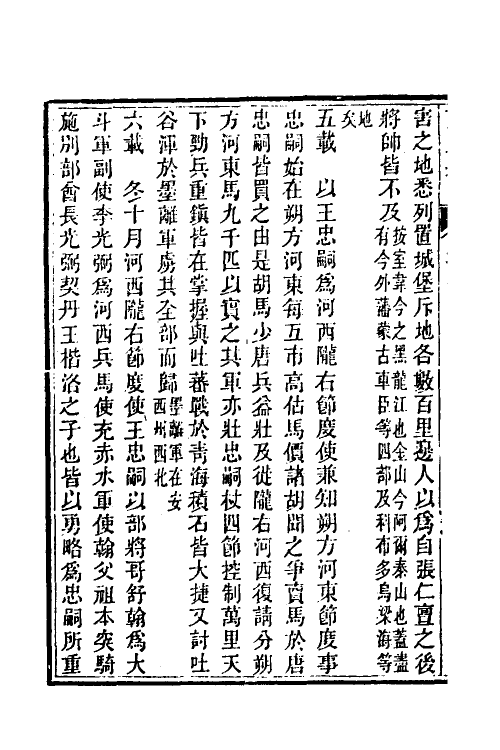 害之地悉列置城堡斥地各數百里邊人以爲自張仁亶之後
將帥皆不及按室韋今之黑龍江也金山今阿爾泰山也蓋盡
有今外藩蒙古車臣等四部及科布多烏梁海等
地
矣
五載　以王忠嗣爲河西隴右節度使兼知朔方河東節度事
忠嗣始在朔方河東每互市高估馬價諸胡聞之爭賣馬於唐
忠嗣皆買之由是胡馬少唐兵益壯及徙隴右河西復請分朔
方河東馬九千匹以實之其軍亦壯忠嗣杖四節控制萬里天
下勁兵重鎮皆在掌握與吐蕃戰於青海積石皆大捷又討吐
谷渾於墨離軍虜其全部而歸墨離軍在安
西州西北
六載　冬十月河西隴右節度使王忠嗣以部將哥舒翰爲大
斗軍副使李光弼爲河西兵馬使充赤水軍使翰父祖本突騎
施別部酋長光弼契丹王楷洛之子也皆以勇略爲忠嗣所重